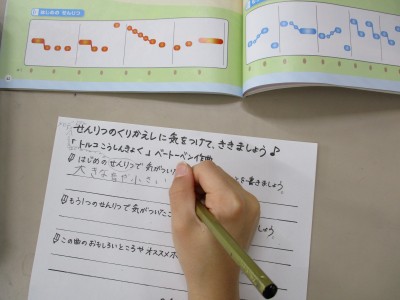 はじめの せんりつ
せんりつのくりかえしに気をつけて、ききましょう♪
「トルコこうしんきょく」ベートーベン作曲
はじめのせんりつで気がつい とを書きましょう。
大きな音や小さい
もう1つのせんりつで気がついたこ う。
この曲のおもしろいところや オススメポ